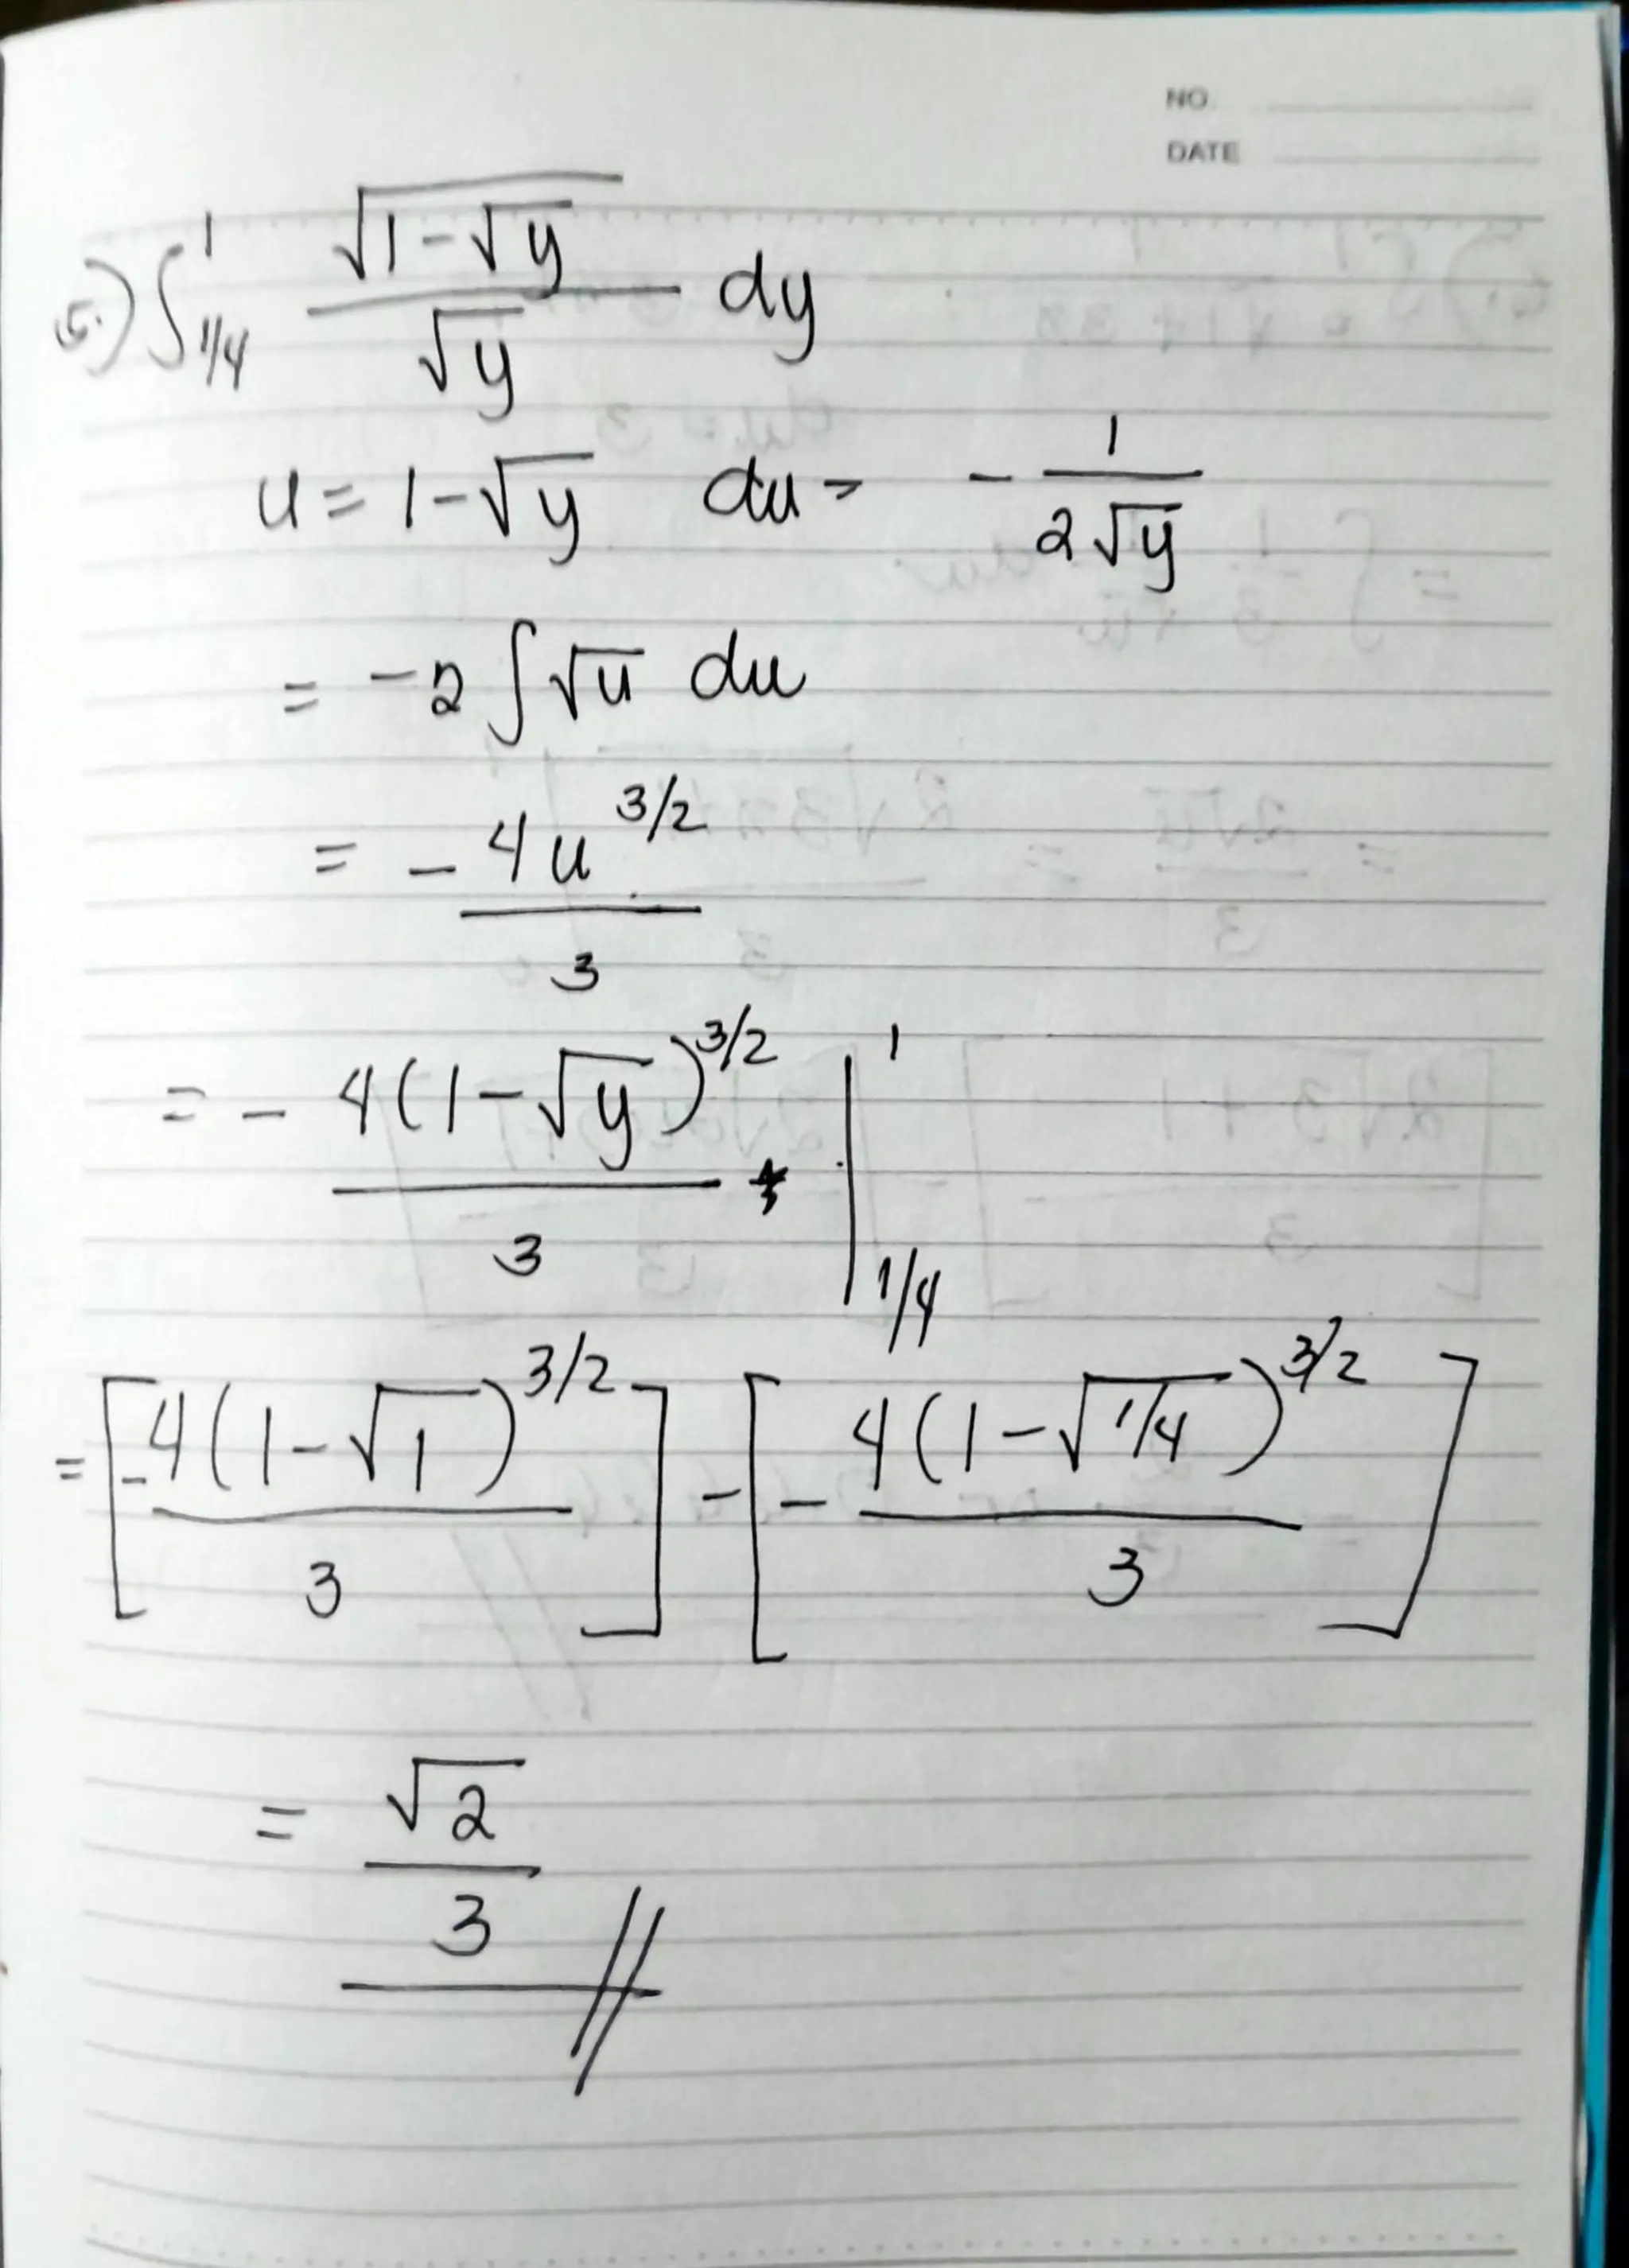 NO.
DATE
5.) ∫_{1/4}^{1} √(1-√y) / √y dy
u = 1-√y du = - 1/(2√y)
= -2 ∫ √u du
= - 4u^{3/2} / 3
= - 4(1-√y)^{3/2} / 3 |_{1/4}^{1}
= [-4(1-√1)^{3/2} / 3] - [- 4(1-√1/4)^{3/2} / 3]
= √2 / 3 //